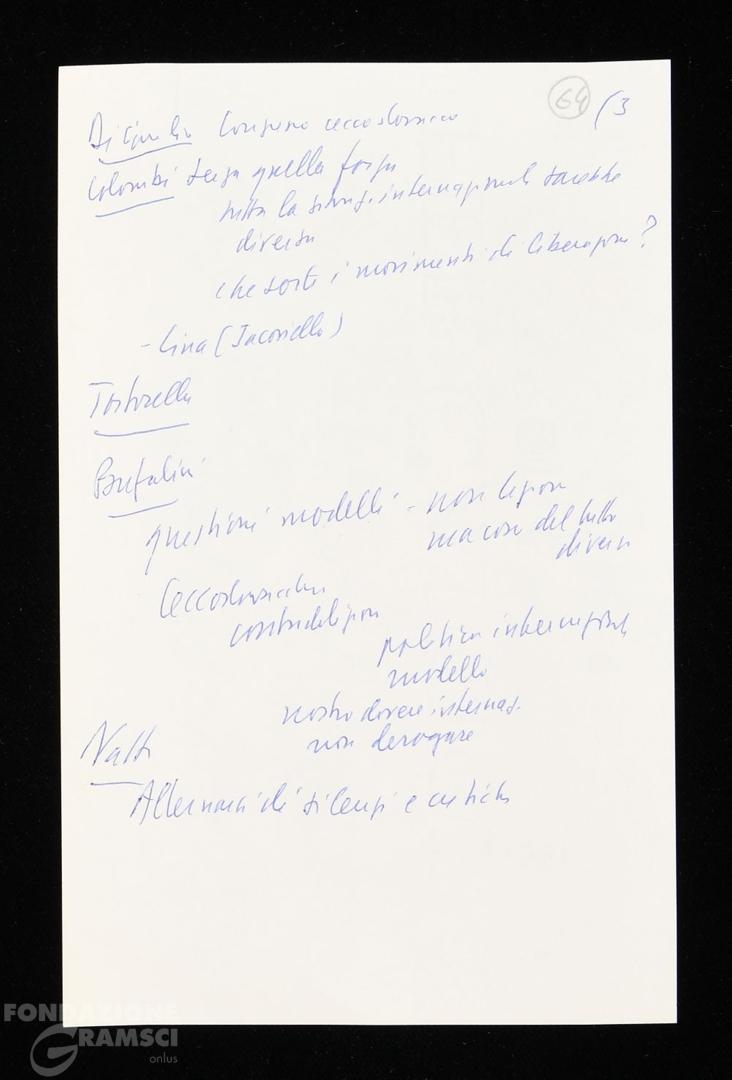 64 (3
Di Giulio Congresso cecoslovacco
Colombi senza quella forza
tutta la situaz. internazionale sarebbe
diversa
che sorte i movimenti di liberazione?
- Lina (Iacoviello)
Tortorella
Bufalini
questioni modelli - non lezioni
ma cosa del tutto
diversa
Cecoslovacchia
contraddizioni
politica internazionale
modello
nostro dovere internaz.
non derogare
Natta
Alternarsi di silenzi e critiche
FONDAZIONE
GRAMSCI
onlus